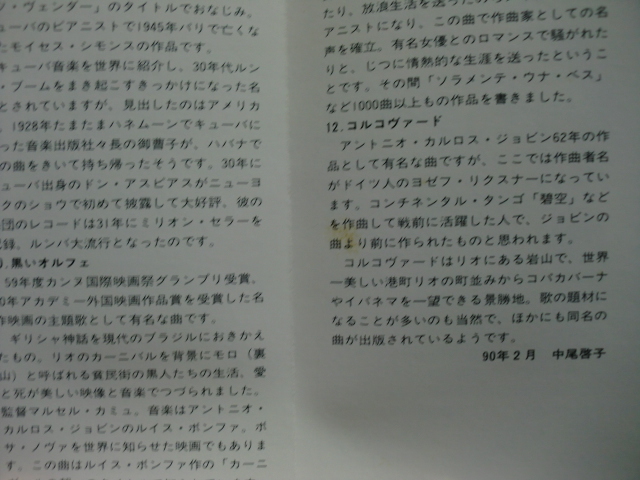 ツ・ヴェンダー」のタイトルでおなじみ。
ューバのピアニストで1945年パリで亡くな
たモイセス・シモンスの作品です。
キューバ音楽を世界に紹介し、30年代ルン
・ブームをまき起こすきっかけになった名
とされていますが、見出したのはアメリカ
、1928年たまたまハネムーンでキューバに
った音楽出版社々長の御曹子が、ハバナで
の曲をきいて持ち帰ったそうです。30年に
ューバ出身のドン・アスピアスがニューヨ
クのショウで初めて披露して大好評。彼の
団のレコードは31年にミリオン・セラーを
録、ルンバ大流行となったのです。
.黒いオルフェ
59年度カンヌ国際映画祭グランプリ受賞、
0年アカデミー外国映画作品賞を受賞した名
作映画の主題歌として有名な曲です。
ギリシャ神話を現代のブラジルにおきかえ
たもの。リオのカーニバルを背景にモロ（裏
山）と呼ばれる貧民街の黒人たちの生活、愛
と死が美しい映像と音楽でつづられました。
監督マルセル・カミュ。音楽はアントニオ・
カルロス・ジョビンのルイス・ボンファ。ボ
サ・ノヴァを世界に知らせた映画でもありま
す。この曲はルイス・ボンファ作の「カーニ
たり、放浪生活を送った
アニストになり、この曲で作曲家としての名
声を確立。有名女優とのロマンスで騒がれた
りと、じつに情熱的な生涯を送ったというこ
とです。その間「ソラメンテ・ウナ・ベス」
など1000曲以上もの作品を書きました。
12.コルコヴァード
アントニオ・カルロス・ジョビン62年の作
品として有名な曲ですが、ここでは作曲者名
がドイツ人のヨゼフ・リクスナーになってい
ます。コンチネンタル・タンゴ「碧空」など
を作曲して戦前に活躍した人で、ジョビンの
曲より前に作られたものと思われます。
コルコヴァードはリオにある岩山で、世界
一美しい港町リオの町並みからコパカバーナ
やイパネマを一望できる景勝地。歌の題材に
なることが多いのも当然で、ほかにも同名の
曲が出版されているようです。
90年2月 中尾啓子